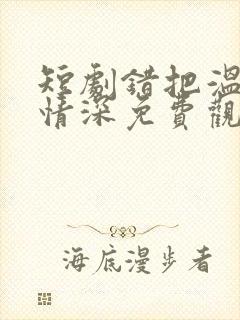 短劇錯把溫
情深免費觀
海底漫步者